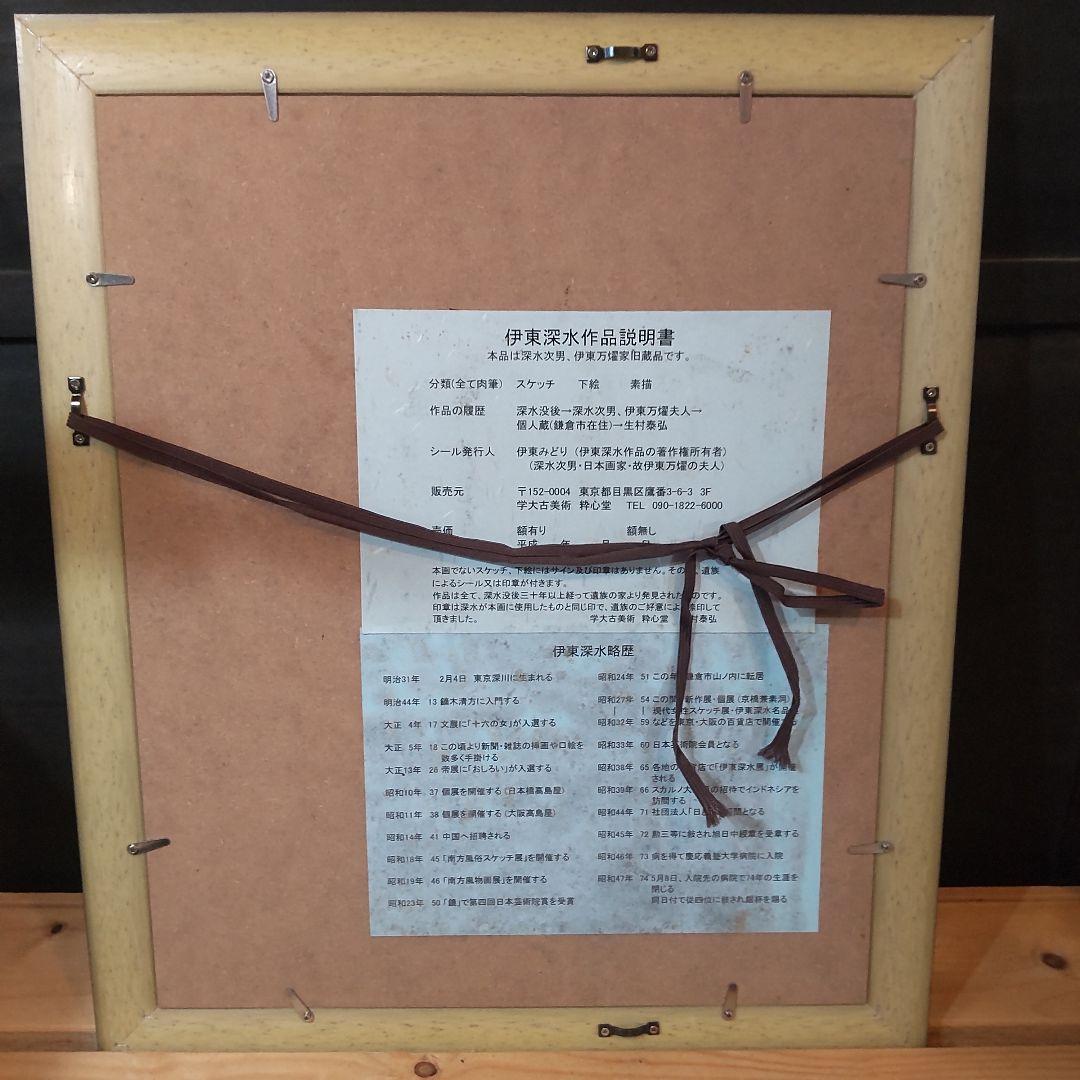 伊東深水作品説明書
本品は深水次男、伊東万燿家旧蔵品です。
分類(全て肉筆) スケッチ 下絵 素描
作品の履歴 深水没後→深水次男、伊東万燿夫人→
個人蔵(鎌倉市在住)→生村泰弘
シール発行人 伊東みどり (伊東深水作品の著作権所有者)
(深水次男・日本画家・故伊東万燿の夫人)
販売元 〒152-0004 東京都目黒区鷹番3-6-3 3F
学大古美術 粋心堂 TEL 090-1822-6000
売価 額有り 額無し
平成 年 月 日
本画でないスケッチ、下絵にはサイン及び印章はありません。その 、遺族
によるシール又は印章が付きます。
作品は全て、深水没後三十年以上経って遺族の家より発見された のです。
印章は深水が本画に使用したものと同じ印で、遺族のご好意によ 捺印して
頂きました。 学大古美術 粋心堂 村泰弘
伊東深水略歴
明治31年 2月4日 東京深川に生まれる
明治44年 13 鏑木清方に入門する
大正 4年 17 文展に「十六の女」が入選する
大正 5年 18 この頃より新聞・雑誌の挿画や口絵を
数多く手掛ける
大正13年 26 帝展に「おしろい」が入選する
昭和10年 37 個展を開催する (日本橋高島屋)
昭和11年 38 個展を開催する (大阪高島屋)
昭和14年 41 中国へ招聘される
昭和18年 45 「南方風俗スケッチ展」を開催する
昭和19年 46 「南方風物画展」を開催する
昭和23年 50 「鏡」で第四回日本芸術院賞を受賞
昭和24年 51 この年 鎌倉市山ノ内に転居
昭和27年 54 この間 新作展・個展 (京橋兼素洞)
| 現代女性スケッチ展・伊東深水名品
昭和32年 59 などを東京・大阪の百貨店で開催する
昭和33年 60 日本芸術院会員となる
昭和38年 65 各地の 貨店で「伊東深水展」が開催
される
昭和39年 66 スカルノ大 の招待でインドネシアを
訪問する
昭和44年 71 社団法人「日 問となる
昭和45年 72 勲三等に叙され旭日中綬章を受章する
昭和46年 73 病を得て慶応義塾大学病院に入院
昭和47年 74 5月8日、入院先の病院で74年の生涯を
閉じる
同日付で従四位に叙され銀杯を賜る